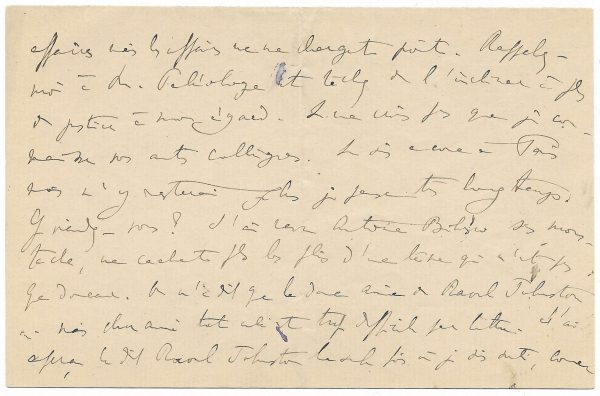 affaires mais les affaires ne me chargent point. Rappelez-
moi à M. Paléologue et tachez de l'incliner à plus
de justice à mon égard. Je ne crois pas que je con-
naisse vos autres collègues. Je suis encore à Paris
mais n'y resterai plus je pense très longtemps.
Y viendrez-vous ? J'ai revu Antoine Bibesco sans mous-
tache, ne cachant plus les plis d'une lèvre qui n'est pas
que douceur. On m'a dit que le Duc ami de Raoul Johnston
mais cher ami tout cela est trop difficile par lettre. J'ai
aperçu le dit Raoul Johnston la seule fois où je suis sorti, comme